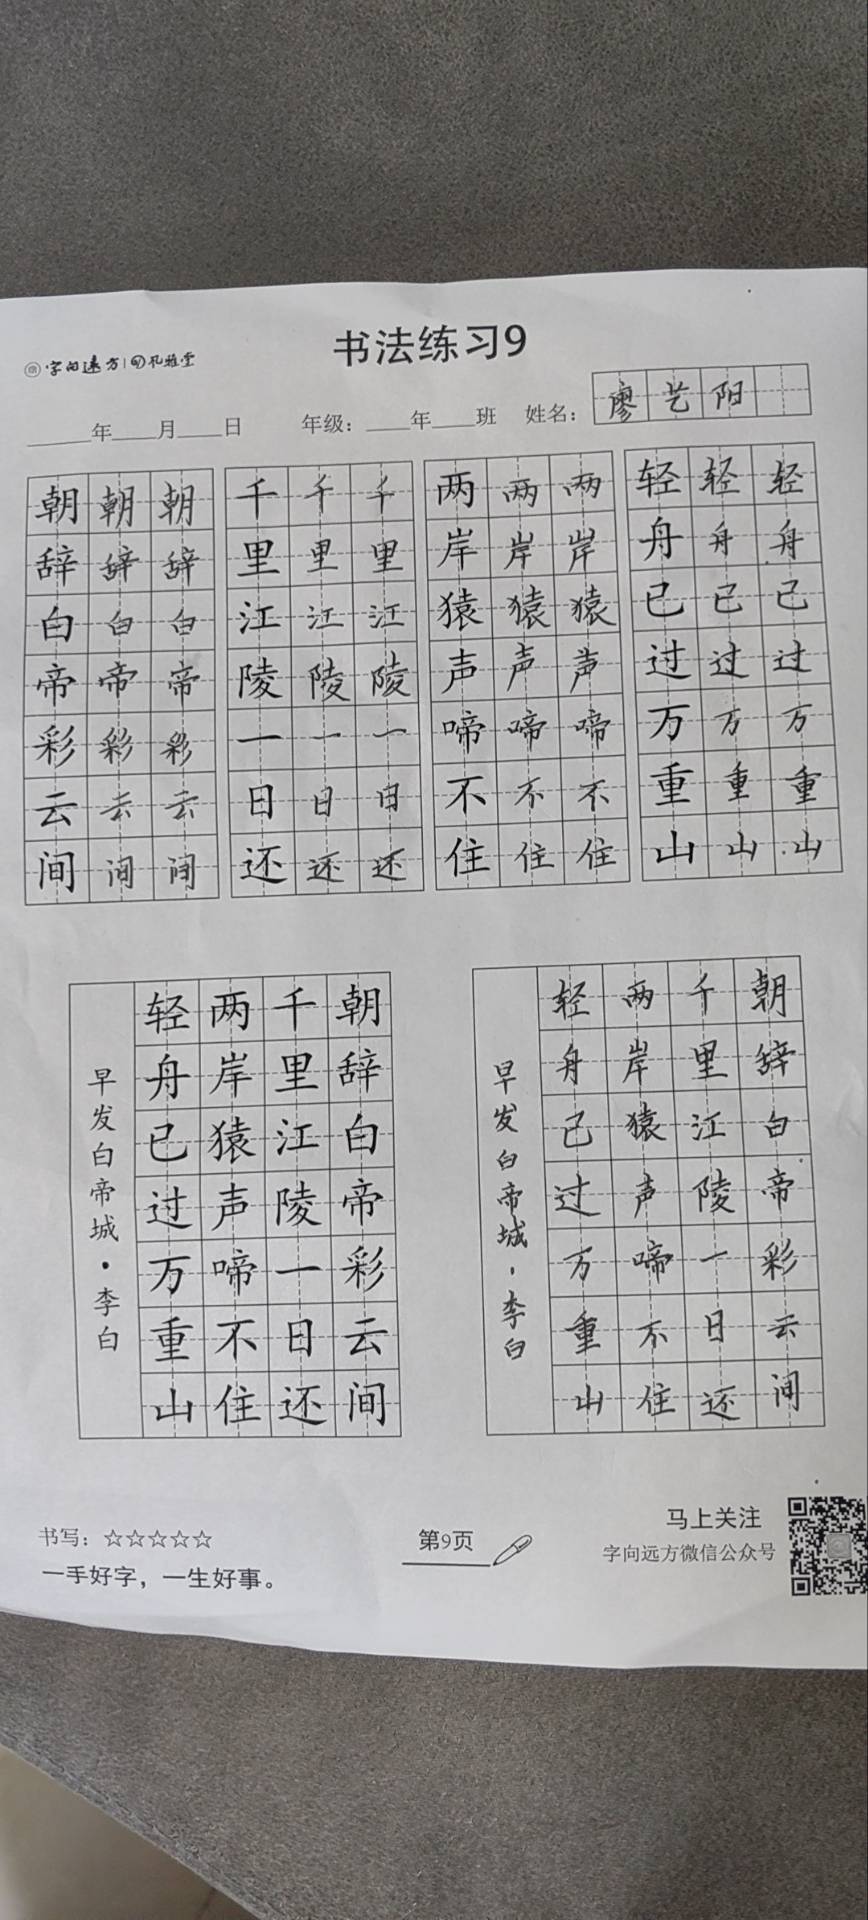 字向远方 孔雅堂
书法练习9
____年____月____日 年级：____年____班 姓名：廖艺阳
朝朝朝 千千千 两两两 轻轻轻
辞辞辞 里里里 岸岸岸 舟舟舟
白白白 江江江 猿猿猿 已已已
帝帝帝 陵陵陵 声声声 过过过
彩彩彩 一一一 啼啼啼 万万万
云云云 日日日 不不不 重重重
间间间 还还还 住住住 山山山
朝辞白帝彩云间
千里江陵一日还
两岸猿声啼不住
轻舟已过万重山
早发白帝城·李白
朝辞白帝彩云间
千里江陵一日还
两岸猿声啼不住
轻舟已过万重山
早发白帝城·李白
书写：☆☆☆☆☆
一手好字，一生好事。
第9页
马上关注
字向远方微信公众号